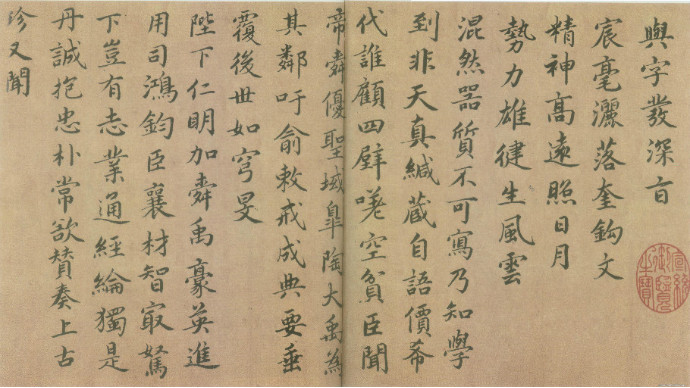 與字發深旨
宸毫灑落奎鈎文
精神高遠照日月
勢力雄健生風雲
混然器質不可寫乃知學
到非天真緘藏自語價希
代誰顧四壁嗟空貧臣聞
帝舜優聖域皐陶大禹為
其鄰吁俞敕戒成典要垂
覆後世如穹旻
陛下仁明加舜禹豪英進
用司鴻鈞臣襄材智最駑
下豈有志業通經綸獨是
丹誠抱忠朴常欲賛奏上古
珍又聞
宣統
御覽
之寶